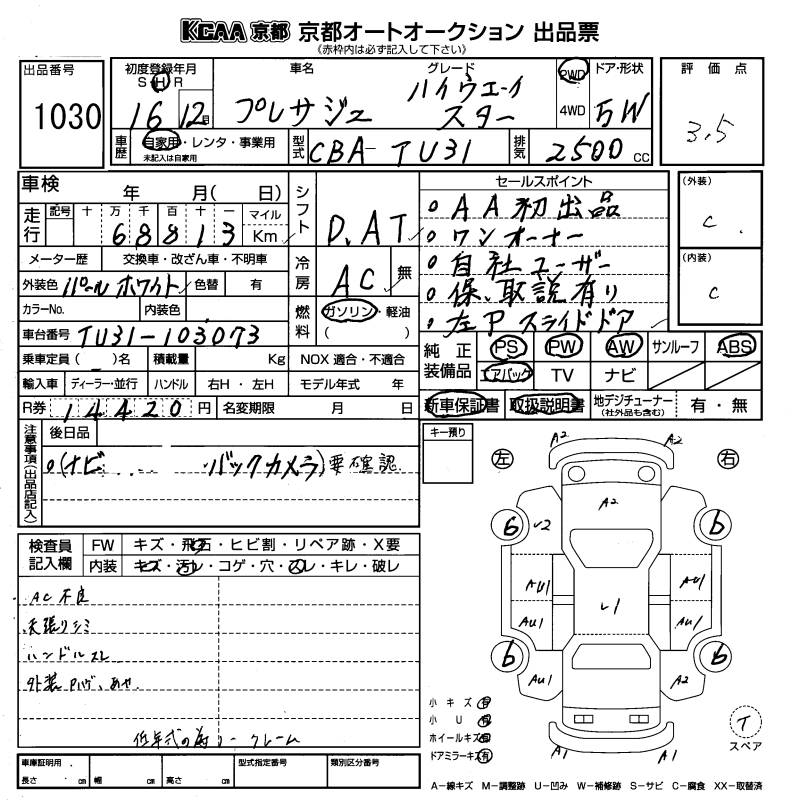 KCAA 京都 京都オートオークション 出品票
《赤枠内は必ず記入して下さい》
出品番号
1030
初度登録年月
S H R
16 12 月
車名
プレサジュ
グレード
ハイウェーイ
スター
2WD
4WD
ドア・形状
5W
評価点
3.5
車歴
自家用・レンタ・事業用
未記入は自家用
型式
CBA-TU31
排気
2500 cc
車検 年 月( 日)
走行
記号 十 万 千 百 十 一 マイル
6 8 8 1 3 Km
メーター歴 交換車・改ざん車・不明車
外装色 パールホワイト 色替 有
カラーNo. 内装色
車台番号 TU31-103073
乗車定員 ( )名 積載量 Kg NOX 適合・不適合
輸入車 ディーラー・並行 ハンドル 右H・左H モデル年式 年
R券 14420 円 名変期限 月 日
シフト
D.AT
冷房
AC 無
燃料
ガソリン・軽油
( )
セールスポイント
AA初出品
ワンオーナー
自社ユーザー
保、取説有り
左P スライドドア
(外装)
C
(内装)
C
純正装備品
PS PW AW サンルーフ ABS
エアバック TV ナビ
新車保証書 取扱説明書 地デジチューナー(社外品も含む) 有・無
注意事項(出品店記入)
後日品
(ナビ ... バックカメラ)要確認
キー預り
左
右
A2 A2
A2
6 b
U2
AU1 AU1
U1
AU1 AU1
b b
AU1 A2
A1 A1
検査員記入欄
FW キズ・飛石・ヒビ割・リペア跡・X要
内装 キズ・汚レ・コゲ・穴・スレ・キレ・破レ
AC不良
天張りシミ
ハンドルスレ
低年式の為ノークレーム
小キズ 有
小U 有
ホイールキズ 有
ドアミラーキズ 有
T
スペア
車庫証明用 型式指定番号 類別区分番号
長さ cm 幅 cm 高さ cm
A-線キズ M-調整跡 U-凹み W-補修跡 S-サビ C-腐食 XX-取替済